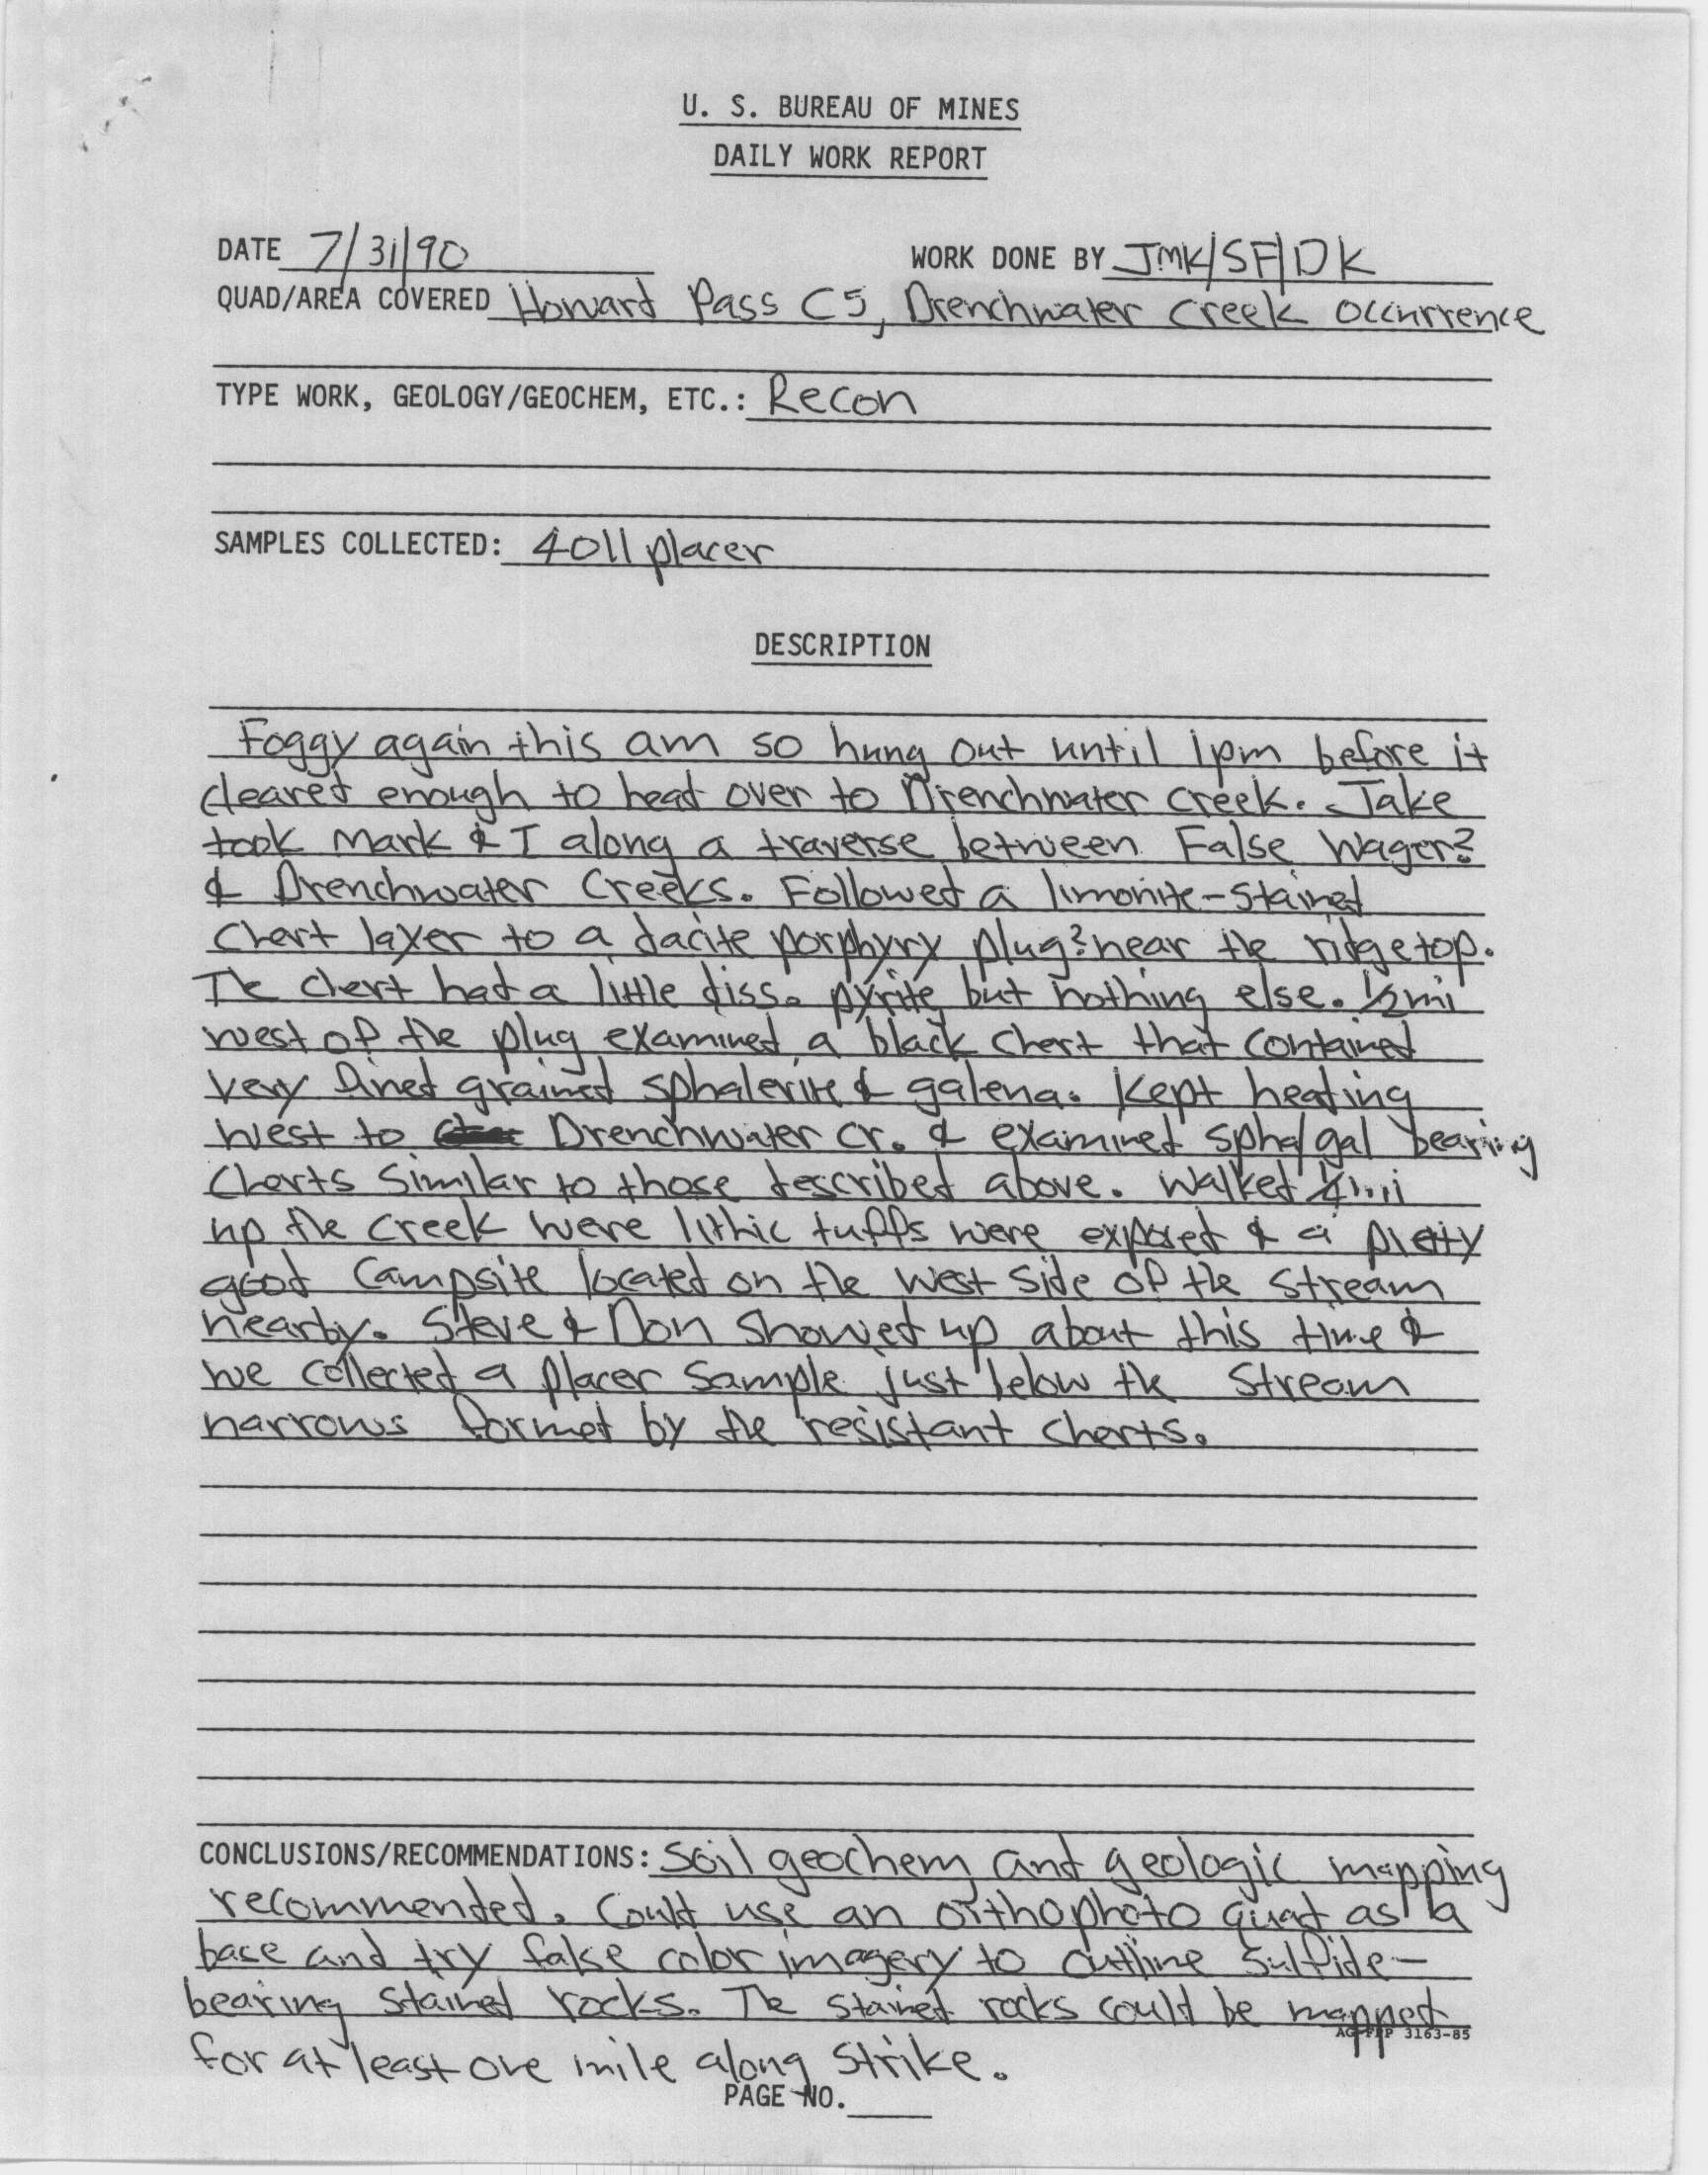 U. S. BUREAU OF MINES
DAILY WORK REPORT
DATE 7/31/90 WORK DONE BY JMK/SF/DK
QUAD/AREA COVERED Howard Pass C5, Drenchwater Creek Occurrence
TYPE WORK, GEOLOGY/GEOCHEM, ETC.: Recon
SAMPLES COLLECTED: 4011 placer
DESCRIPTION
Foggy again this am so hung out until 1pm before it
cleared enough to head over to Drenchwater Creek. Jake
took Mark & I along a traverse between False Wager?
& Drenchwater Creeks. Followed a limonite-stained
chert layer to a dacite porphyry plug? near the ridgetop.
The chert had a little diss. pyrite but nothing else. 1/2 mi
west of the plug examined a black chert that contained
very fined grained sphalerite & galena. Kept heading
west to Drenchwater Cr. & examined spha/gal bearing
cherts similar to those described above. Walked 1/4 mi
up the creek were lithic tuffs were exposed & a pretty
good campsite located on the west side of the stream
nearby. Steve & Don showed up about this time &
we collected a placer sample just below the stream
narrows formed by the resistant cherts.
CONCLUSIONS/RECOMMENDATIONS: Soil geochem and geologic mapping
recommended. Could use an orthophoto quad as a
base and try false color imagery to outline sulfide-
bearing stained rocks. The stained rocks could be mapped
3163-85
for at least one mile along strike.
PAGE NO.